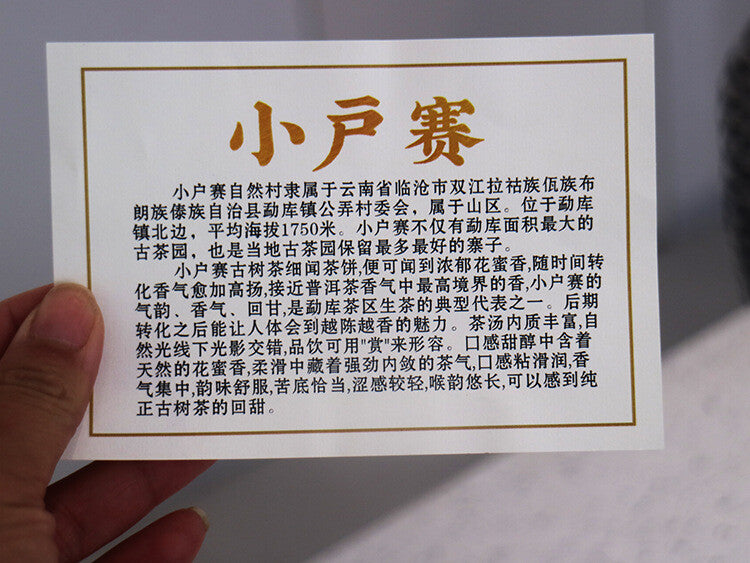 小户赛
小户赛自然村隶属于云南省临沧市双江拉祜族佤族布
朗族傣族自治县勐库镇公弄村委会，属于山区。位于勐库
镇北边，平均海拔1750米。小户赛不仅有勐库面积最大的
古茶园，也是当地古茶园保留最多最好的寨子。
小户赛古树茶细闻茶饼,便可闻到浓郁花蜜香,随时间转
化香气愈加高扬,接近普洱茶香气中最高境界的香,小户赛的
气韵、香气、回甘,是勐库茶区生茶的典型代表之一。后期
转化之后能让人体会到越陈越香的魅力。茶汤内质丰富,自
然光线下光影交错,品饮可用"赏"来形容。口感甜醇中含着
天然的花蜜香,柔滑中藏着强劲内敛的茶气,口感粘滑润,香
气集中,韵味舒服,苦底恰当,涩感较轻,喉韵悠长,可以感到纯
正古树茶的回甜。